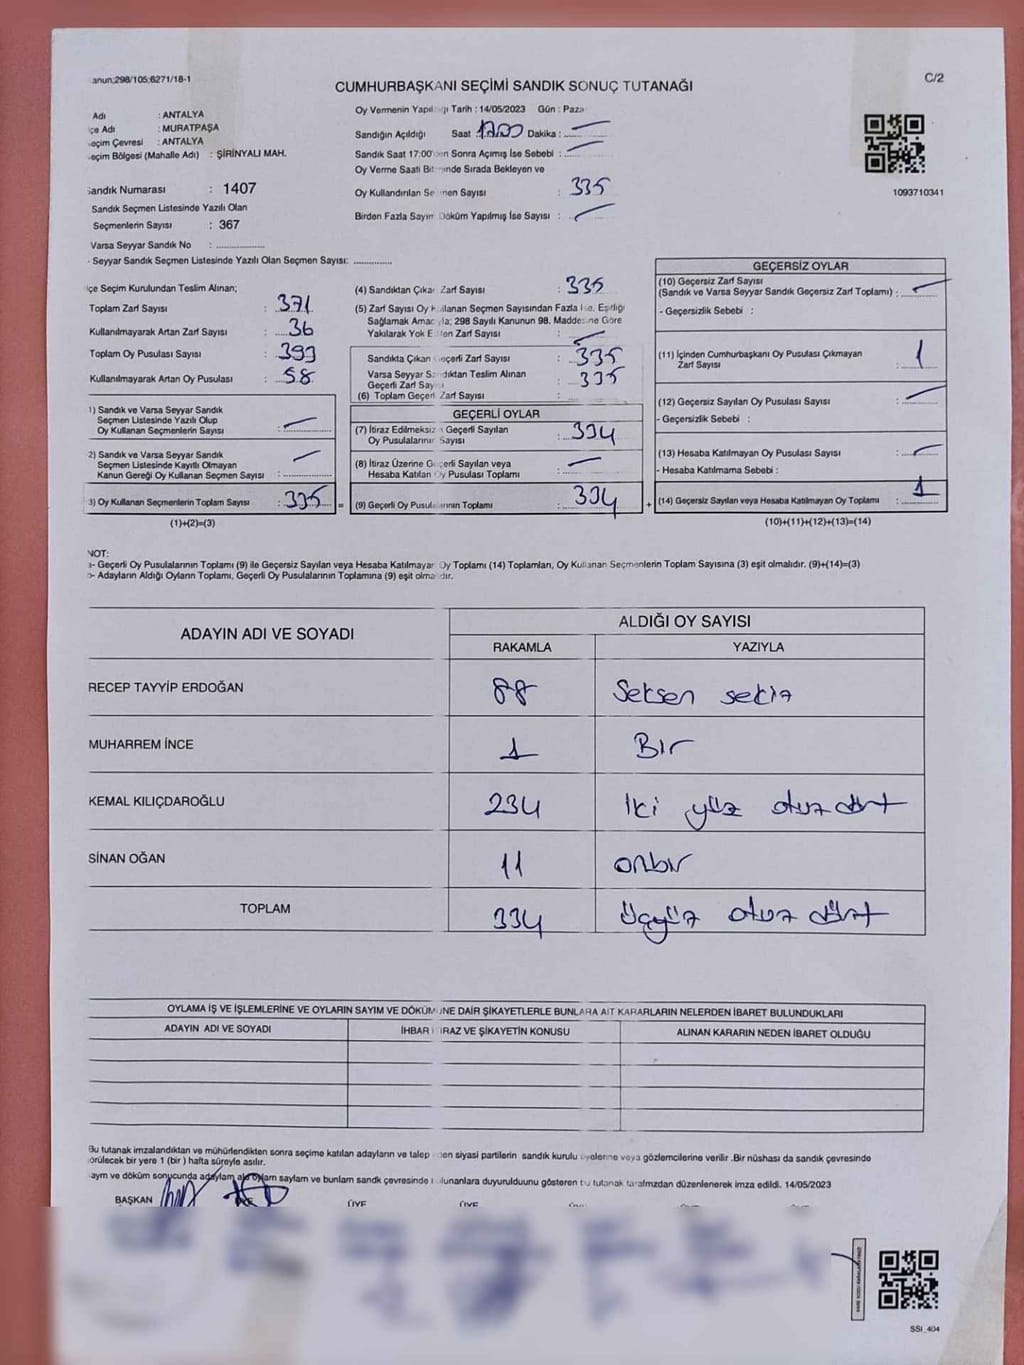 anun;298/105;6271/18-1
CUMHURBAŞKANI SEÇİMİ SANDIK SONUÇ TUTANAĞI
C/2
Adı : ANTALYA
çe Adı : MURATPAŞA
eçim Çevresi : ANTALYA
eçim Bölgesi (Mahalle Adı) : ŞİRİNYALI MAH.
Sandık Numarası : 1407
Sandık Seçmen Listesinde Yazılı Olan
Seçmenlerin Sayısı : 367
Varsa Seyyar Sandık No : ................
- Seyyar Sandık Seçmen Listesinde Yazılı Olan Seçmen Sayısı: ............
Oy Vermenin Yapıl ğı Tarih : 14/05/2023 Gün : Paza
Sandığın Açıldığı Saat : 17.00 Dakika :
Sandık Saat 17:00 en Sonra Açımış İse Sebebi :
Oy Verme Saati Bit inde Sırada Bekleyen ve
Oy Kullandırılan Se nen Sayısı : 335
Birden Fazla Sayım Döküm Yapılmış İse Sayısı :
1093710341
çe Seçim Kurulundan Teslim Alınan;
Toplam Zarf Sayısı : 371
Kullanılmayarak Artan Zarf Sayısı : 36
Toplam Oy Pusulası Sayısı : 393
Kullanılmayarak Artan Oy Pusulası : 58
1) Sandık ve Varsa Seyyar Sandık
Seçmen Listesinde Yazılı Olup
Oy Kullanan Seçmenlerin Sayısı :
2) Sandık ve Varsa Seyyar Sandık
Seçmen Listesinde Kayıtlı Olmayan
Kanun Gereği Oy Kullanan Seçmen Sayısı :
3) Oy Kullanan Seçmenlerin Toplam Sayısı : 335 =
(1)+(2)=(3)
(4) Sandıktan Çıka Zarf Sayısı : 335
(5) Zarf Sayısı Oy K llanan Seçmen Sayısından Fazla İse, Eşitliği
Sağlamak Amac la; 298 Sayılı Kanunun 98. Maddesine Göre
Yakılarak Yok E len Zarf Sayısı
Sandıkta Çıkan eçerli Zarf Sayısı : 335
Varsa Seyyar S ndıktan Teslim Alınan
Geçerli Zarf Say : 335
(6) Toplam Geçerl Zarf Sayısı :
GEÇERLİ OYLAR
(7) İtiraz Edilmeksiz Geçerli Sayılan
Oy Pusulalarının Sayısı : 334
(8) İtiraz Üzerine G çerli Sayılan veya
Hesaba Katılan Oy Pusulası Toplamı :
(9) Geçerli Oy Pusul rının Toplamı : 334 +
GEÇERSİZ OYLAR
(10) Geçersiz Zarf Sayısı
(Sandık ve Varsa Seyyar Sandık Geçersiz Zarf Toplamı) :
- Geçersizlik Sebebi :
(11) İçinden Cumhurbaşkanı Oy Pusulası Çıkmayan
Zarf Sayısı : 1
(12) Geçersiz Sayılan Oy Pusulası Sayısı :
- Geçersizlik Sebebi :
(13) Hesaba Katılmayan Oy Pusulası Sayısı :
- Hesaba Katılmama Sebebi :
(14) Geçersiz Sayılan veya Hesaba Katılmayan Oy Toplamı : 1
(10)+(11)+(12)+(13)=(14)
NOT:
a- Geçerli Oy Pusulalarının Toplamı (9) ile Geçersiz Sayılan veya Hesaba Katılmayan Oy Toplamı (14) Toplamları, Oy Kullanan Seçmenlerin Toplam Sayısına (3) eşit olmalıdır. (9)+(14)=(3)
b- Adayların Aldığı Oyların Toplamı, Geçerli Oy Pusulalarının Toplamına (9) eşit olmalıdır.
ADAYIN ADI VE SOYADI
ALDIĞI OY SAYISI
RAKAMLA YAZIYLA
RECEP TAYYİP ERDOĞAN 88 Seksen sekiz
MUHARREM İNCE 1 Bir
KEMAL KILIÇDAROĞLU 234 iki yüz otuz dört
SİNAN OĞAN 11 onbir
TOPLAM 334 üçyüz otuz dört
OYLAMA İŞ VE İŞLEMLERİNE VE OYLARIN SAYIM VE DÖKÜMÜNE DAİR ŞİKAYETLERLE BUNLARA AİT KARARLARIN NELERDEN İBARET BULUNDUKLARI
ADAYIN ADI VE SOYADI İHBAR İTİRAZ VE ŞİKAYETİN KONUSU ALINAN KARARIN NEDEN İBARET OLDUĞU
Bu tutanak imzalandıktan ve mühürlendikten sonra seçime katılan adayların ve talep eden siyasi partilerin sandık kurulu üyelerine veya gözlemcilerine verilir .Bir nüshası da sandık çevresinde
örülecek bir yere 1 (bir ) hafta süreyle asılır.
14/05/2023
BAŞKAN ÜYE ÜYE ÜYE
SSI_404